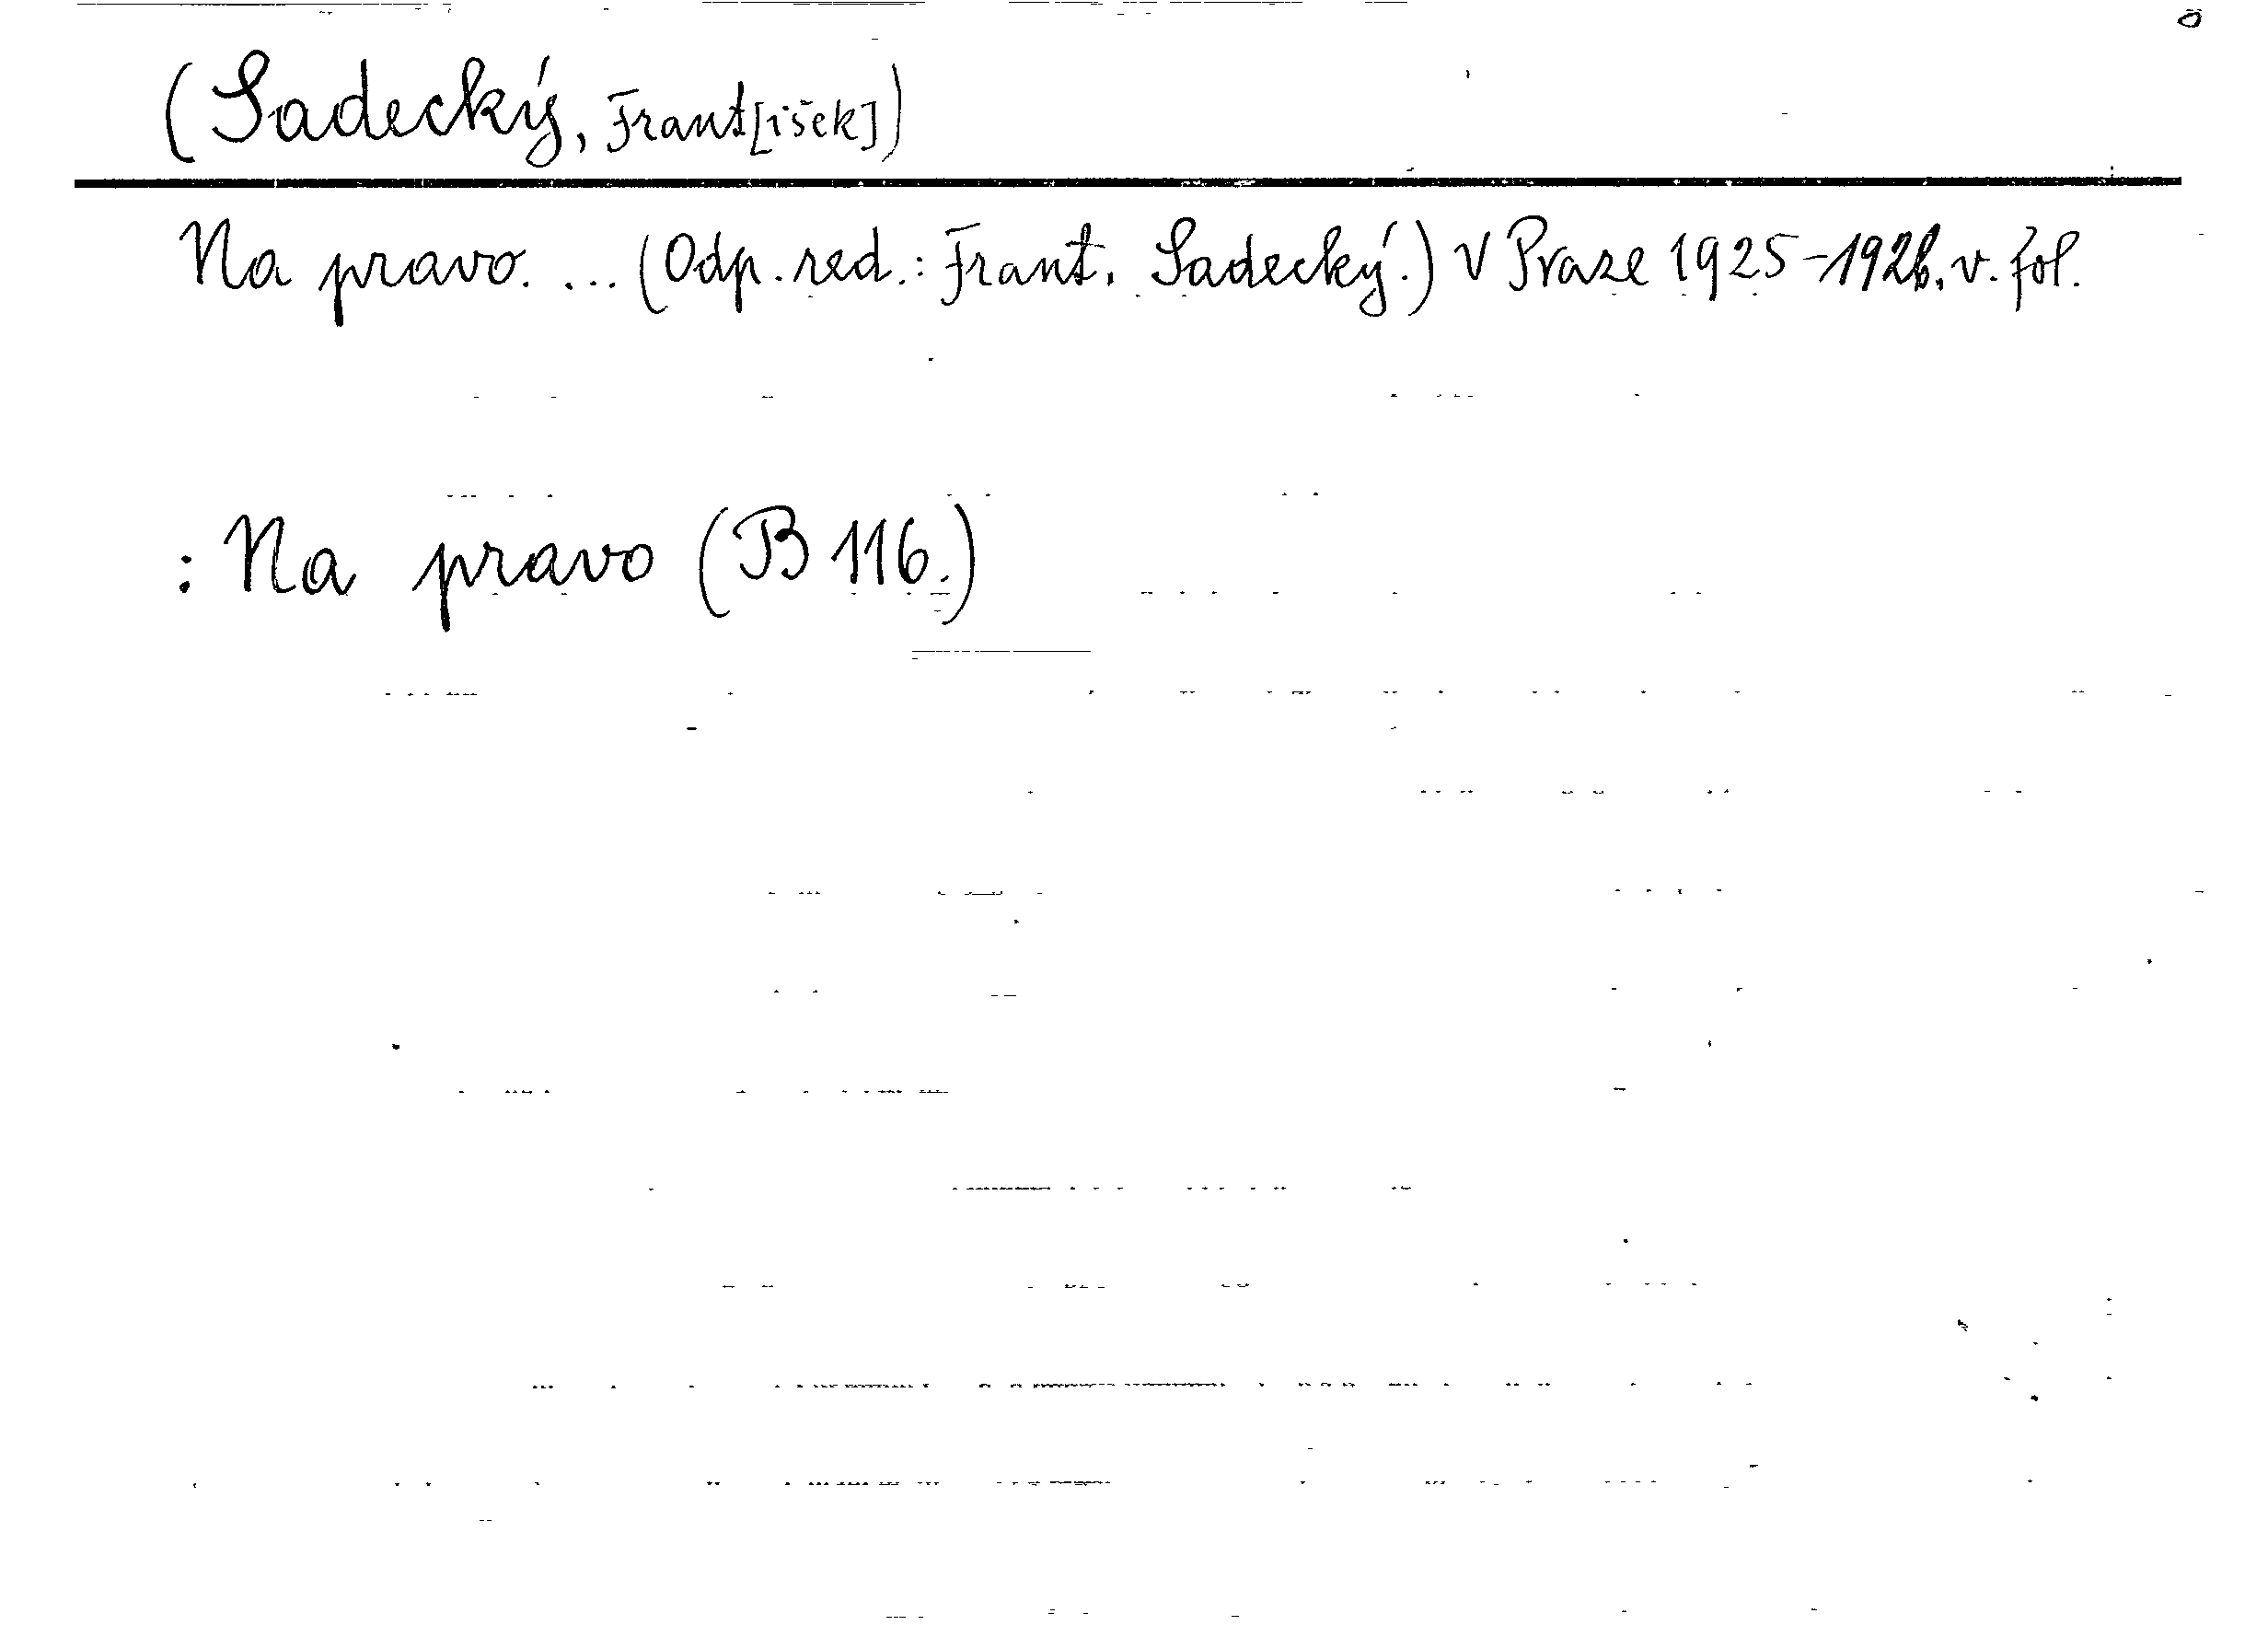 (Sadecký, Frant[išek])
Na pravo. ... (Odp. red.: Frant. Sadecký.) V Praze 1925-1926. v. fol.
: Na pravo (B 116.)